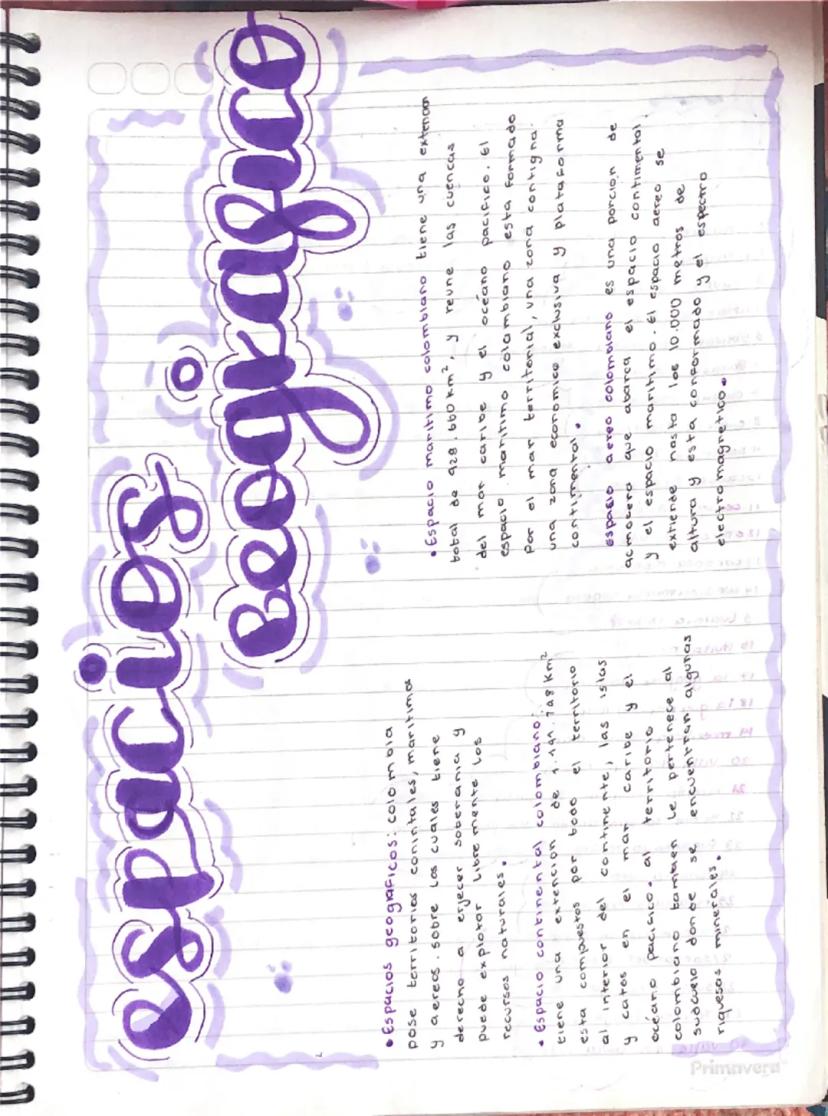 espacios
Geografico
• Espacios geograficos: colombia
pose territorios conintales, maritimos
y aereos. sobre los cuales tiene
derecho a erjecer soberania y
puede explotar libremente los
recursos naturales.
• Espacio continental colombiano:
tiene una extención de 1.141.748 Km²
esta compuestos por todo el territorio
al interior del continente, las islas
y catos en el mar caribe y el
océano pacifico. al territorio
colombiano tambien le pertenece al
subcuelo donde se encuentran algunas
riquesas minerales.
• Espacio maritimo colombiano tiene una extencion
total de 928.660 km², y reune las cuencas
del mar caribe y el océano pacifico. El
espacio maritimo colombiano esta formado
por el mar territorial, una zona contigna.
una zona economice exclusiva y plataforma
contimental.
espacio aereo colombiano es una porcion de
acmocera que abarca el espacio contimental.
y el espacio maritimo. El espacio aereo se
extiende hasta los 10.000 metros de
altura y esta conformado y el espectro
electromagnetico.
Primavera